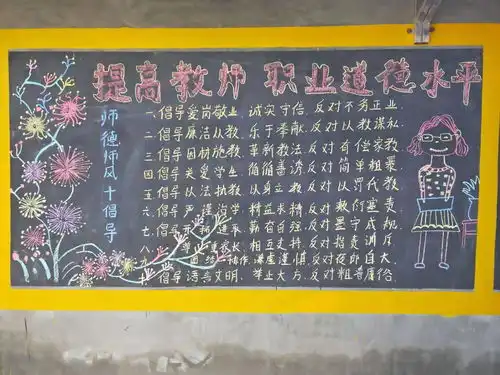 提高教师 职业道德水平
师德师风十倡导
一 倡导爱岗敬业、诚实守信,反对不务正业.
二 倡导廉洁从教、乐于奉献,反对从教谋私.
三 倡导因材施教、革新教法,反对有偿家教
四 倡导关爱学生、循循善诱,反对简单粗暴
五 倡导从法执教、从身立教,反对从罚代教
六 倡导严谨治学、精益求精,反对敷衍塞责
七 倡导 自强,反对墨守成规
八 相互支持,反对指责训斥
九 协作、谦虚谨慎,反对夜郎自大
倡导语言文明、举止大方,反对粗鲁庸俗